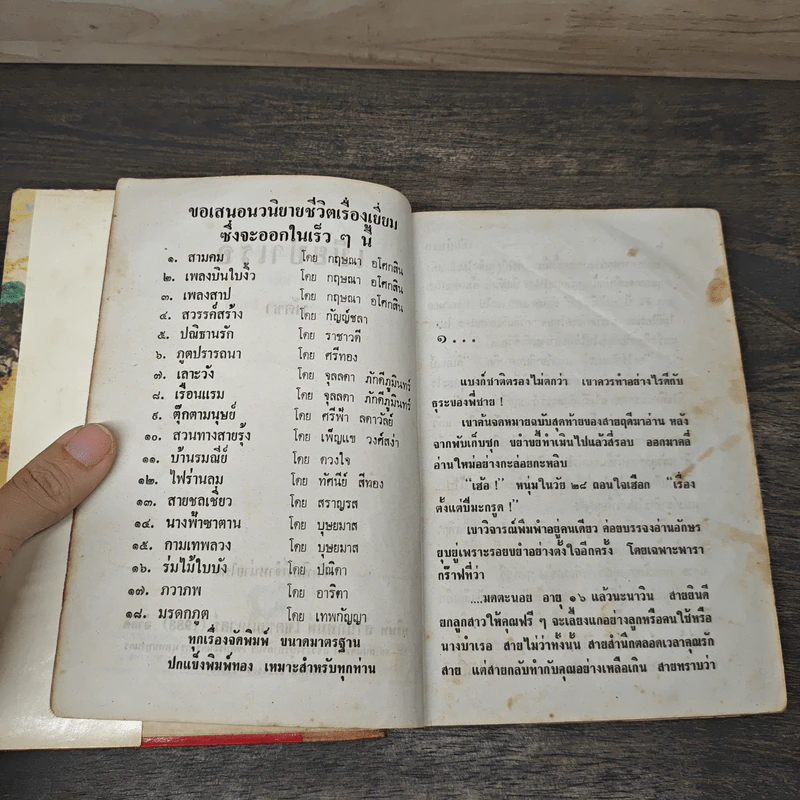 ขอเสนอนวนิยายชีวิตเรื่องเยี่ยม
ซึ่งจะออกในเร็ว ๆ นี้
๑. สามคม โดย กฤษณา อโศกสิน
๒. เพลงบินใบงิ้ว โดย กฤษณา อโศกสิน
๓. เพลงสาป โดย กฤษณา อโศกสิน
๔. สวรรค์สร้าง โดย กัญญ์ชลา
๕. ปณิธานรัก โดย ราชาวดี
๖. ภูตปรารถนา โดย ศรีทอง
๗. เลาะวัง โดย จุลลดา ภักดีภูมินทร์
๘. เรือนแรม โดย จุลลดา ภักดีภูมินทร์
๙. ตุ๊กตามนุษย์ โดย ศรีฟ้า ลดาวัลย์
๑๐. สวนทางสายรุ้ง โดย เพ็ญแข วงศ์สง่า
๑๑. บ้านรมณีย์ โดย ดวงใจ
๑๒. ไฟร่านลม โดย ทัศนีย์ สีทอง
๑๓. สายชลเชี่ยว โดย สราญรส
๑๔. นางฟ้าซาตาน โดย บุษยมาส
๑๕. กามเทพลวง โดย บุษยมาส
๑๖. ร่มไม้ใบบัง โดย ปณิตา
๑๗. ภวาภพ โดย อาริตา
๑๘. มรดกภูต โดย เทพกัญญา
ทุกเรื่องจัดพิมพ์ ขนาดมาตรฐาน
ปกแข็งพิมพ์ทอง เหมาะสำหรับทุกท่าน
๑...
แบงก์ชาติตรองไม่ตกว่า เขาควรทำอย่างไรดีกับ
ธุระของพี่ชาย !
เขาค้นจดหมายฉบับสุดท้ายของสายฤดีมาอ่าน หลัง
จากพับเก็บซุก ขยำขยี้ทำเมินไปแล้วสี่รอบ ออกมาคลี่
อ่านใหม่อย่างกะล่อยกะหลิบ
“เฮ้อ !” หนุ่มในวัย ๒๘ ถอนใจเฮือก “เรื่อง
ตั้งแต่ปีมะกรูด !”
เขาวิจารณ์พึมพำอยู่คนเดียว ค่อยบรรจงอ่านอักษร
ยุบยู่เพราะรอยขยำอย่างตั้งใจอีกครั้ง โดยเฉพาะพารา
กร๊าฟที่ว่า
....มดตะนอย อายุ ๑๖ แล้วนะนาวิน สายยินดี
ยกลูกสาวให้คุณฟรี ๆ จะเลี้ยงแกอย่างลูกหรือคนใช้หรือ
นางบำเรอ สายไม่ว่าทั้งนั้น สายสำนึกตลอดเวลาคุณรัก
สาย แต่สายกลับทำกับคุณอย่างเหลือเกิน สายทราบว่า